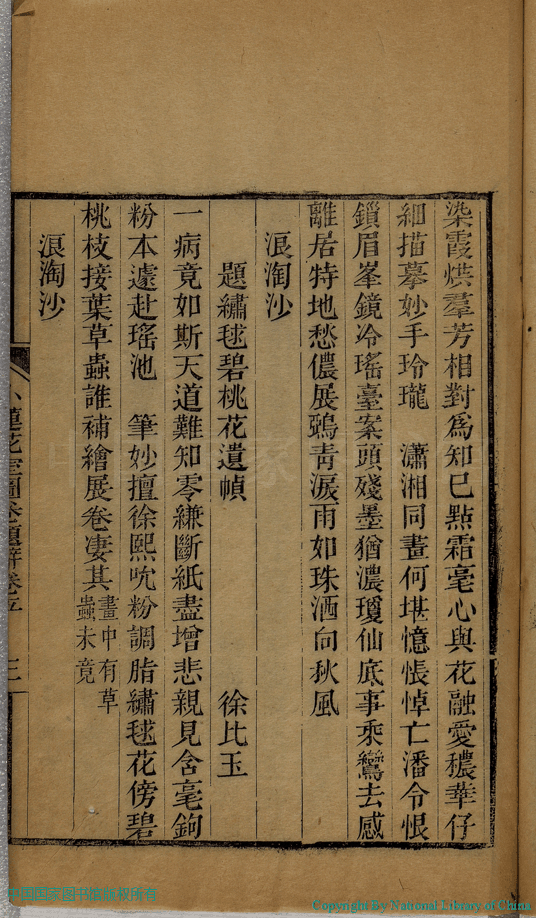 染霞烘羣芳相對爲知已點霜毫心與花融愛穠華仔
細描摹妙手玲瓏　瀟湘同晝何堪憶悵悼亡潘令恨
鎖眉峯鏡冷瑤臺案頭殘墨猶濃瓊仙底事乘鸞去感
離居特地愁儂展鵐靑淚雨如珠洒向秋風
浪淘沙
題繡毬碧桃花遺幀　徐比玉
一病竟如斯天道難知零縑斷紙盡增悲親見含毫鉤
粉本遽赴瑤池　筆妙擅徐熙吮粉調脂繡毬花傍碧
桃枝接葉草蟲誰補繪展卷凄其
畫中有草
蟲未竟
浪淘沙
小蓮花室圖卷題辭卷五
三
中国国家图书馆版权所有
Copyright By National Library of China